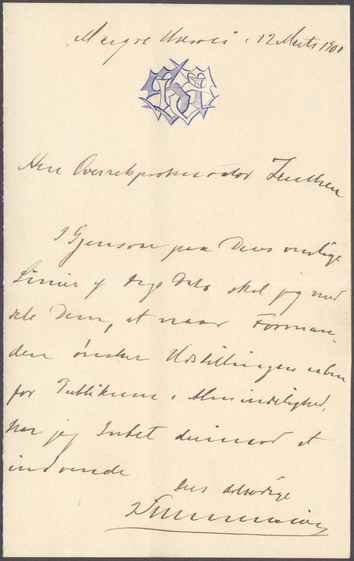 12 Marts 1901
Herr Overretsprokurator Zeuthen
I Gjensvar paa Deres ærede
Linier af Dags Dato skal jeg med
dele Dem, at naar Forman
den ønsker Udstillingen aaben
for Publikum i Almindelighed,
har jeg Intet derimod at
indvende
Deres ærbødige